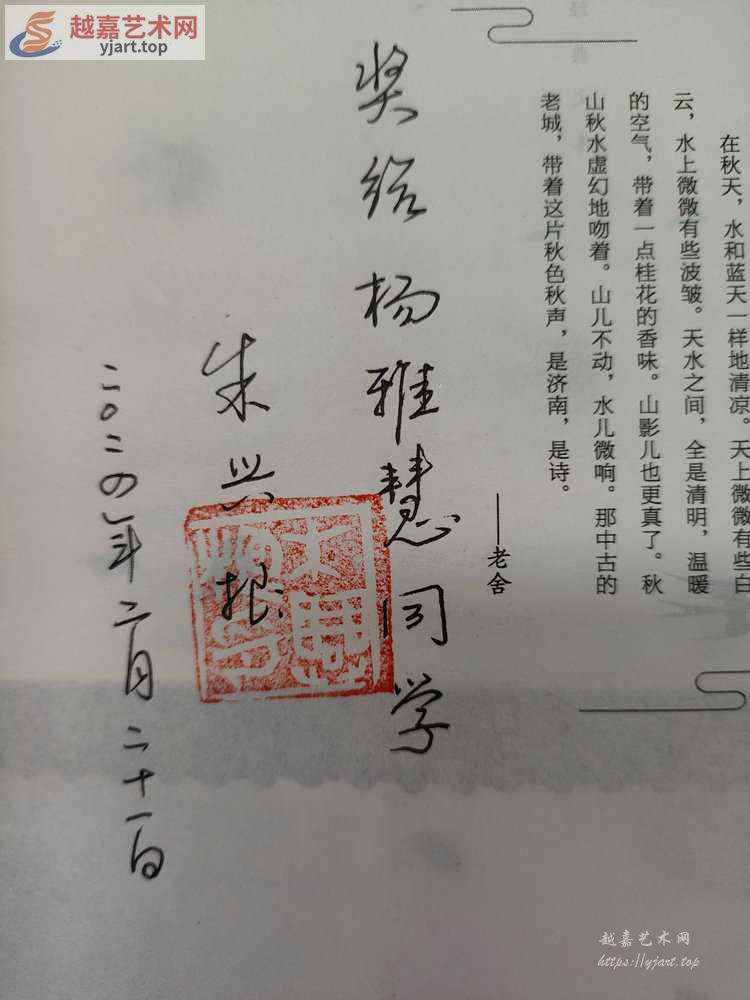 越嘉艺术网
yjart.top
在秋天，水和蓝天一样地清凉。天上微微有些白
云，水上微微有些波皱。天水之间，全是清明，温暖
的空气，带着一点桂花的香味。山影儿也更真了。秋
山秋水虚幻地吻着。山儿不动，水儿微响。那中古的
老城，带着这片秋色秋声，是济南，是诗。
——老舍
奖给杨雅慧同学
朱兴根
二〇二四年二月二十一日
越嘉艺术网
https://yjart.top